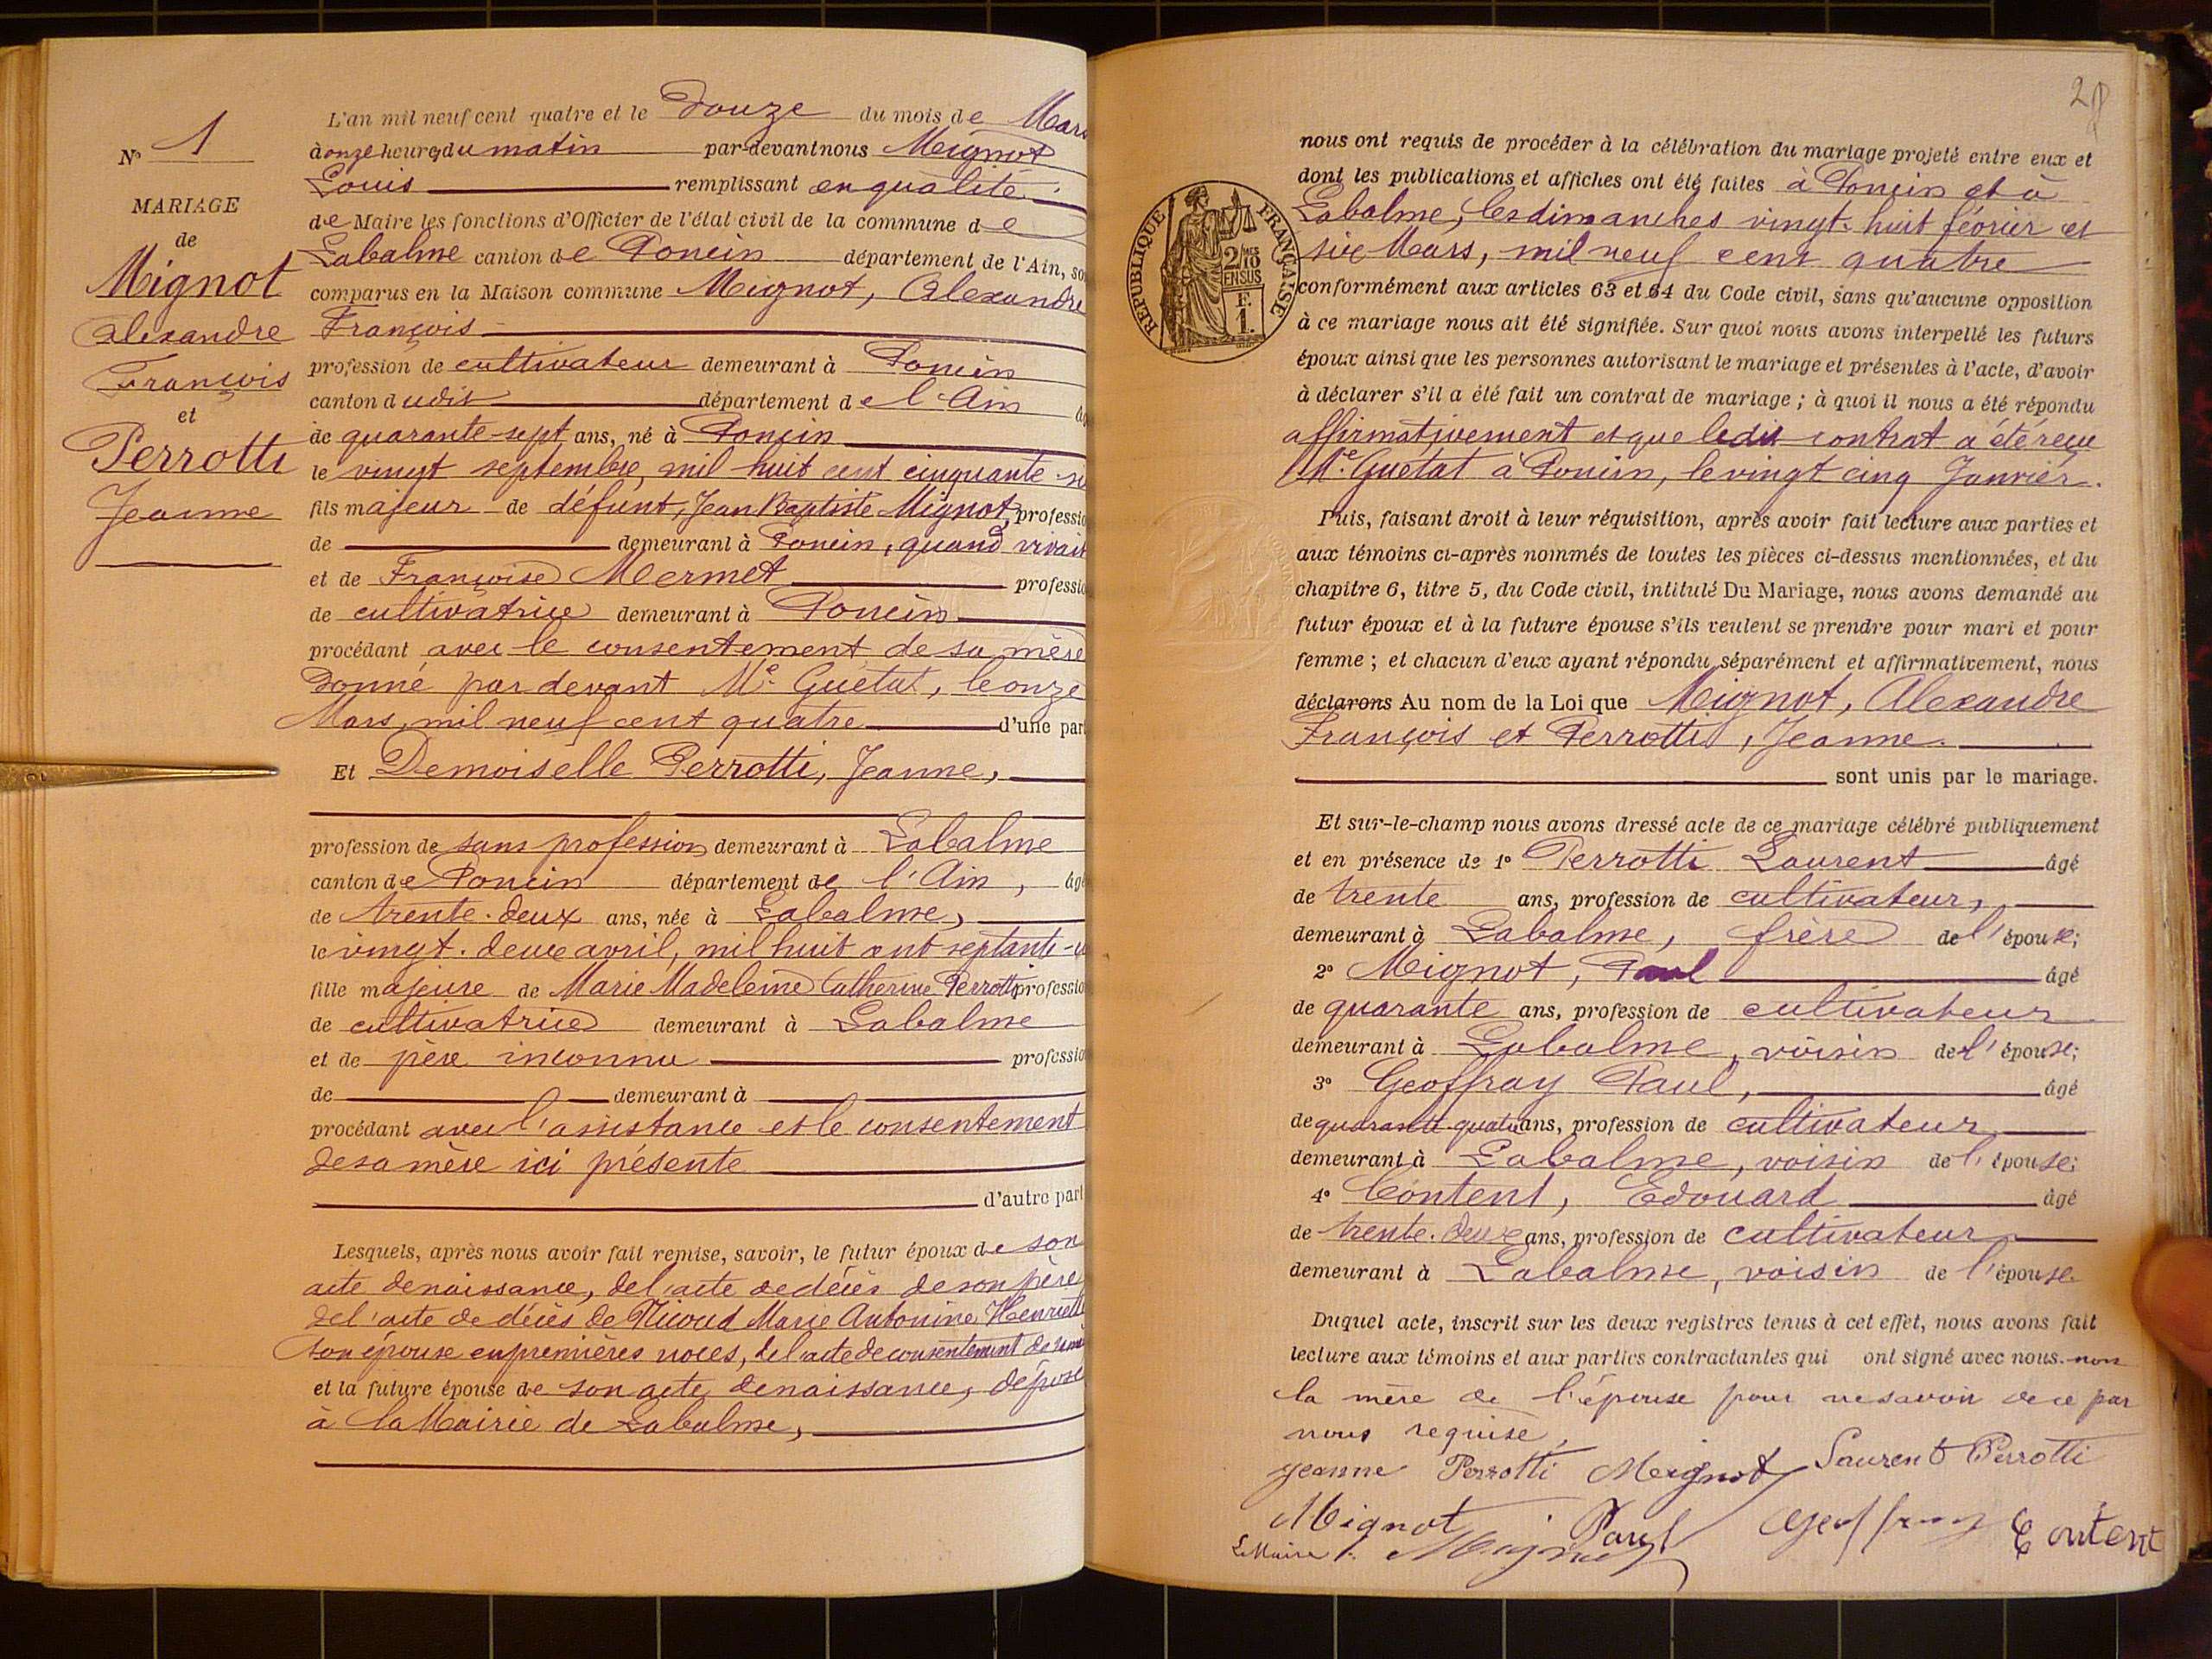 N° 1
MARIAGE
de
Mignot
Alexandre
François
et
Perrotti
Jeanne
L'an mil neuf cent quatre et le Douze du mois de Mars
à onze heures du matin par-devant nous Mignot
Louis remplissant en qualité
de Maire les fonctions d'Officier de l'état civil de la commune de
Labalme canton de Poncin département de l'Ain, so
comparus en la Maison commune Mignot, Alexandre
François
profession de cultivateur demeurant à Poncin
canton dudit département de l'Ain âg
de quarante-sept ans, né à Poncin
le vingt septembre, mil huit cent cinquante-si
fils majeur de défunt, Jean Baptiste Mignot, professio
de demeurant à Poncin, quand vivait
et de Françoise Mermet professio
de cultivatrice demeurant à Poncin
procédant avec le consentement de sa mère
Donné par devant Me Guétat, le onze
Mars, mil neuf cent quatre d'une part
Et Demoiselle Perrotti, Jeanne,
profession de sans profession demeurant à Labalme
canton de Poncin département de l'Ain, âgé
de trente-deux ans, née à Labalme,
le vingt-deux avril, mil huit cent septante-u
fille majeure de Marie Madeleine Catherine Perrotti professio
de cultivatrice demeurant à Labalme
et de père inconnu professio
de demeurant à
procédant avec l'assistance et le consentement
de sa mère ici présente
d'autre part
Lesquels, après nous avoir fait remise, savoir, le futur époux de son
acte de naissance, de l'acte de décès de son père
de l'acte de décès de Nicoud Marie Antonine Henriette
son épouse en premières noces, de l'acte de consentement de sa mè
et la future épouse de son acte de naissance, déposé
à la Mairie de Labalme,
28
REPUBLIQUE FRANÇAISE
2/10 EN SUS
F.
1.
nous ont requis de procéder à la célébration du mariage projeté entre eux et
dont les publications et affiches ont été faites à Poncin et à
Labalme, les dimanches vingt-huit février et
six Mars, mil neuf cent quatre
conformément aux articles 63 et 64 du Code civil, sans qu'aucune opposition
à ce mariage nous ait été signifiée. Sur quoi nous avons interpellé les futurs
époux ainsi que les personnes autorisant le mariage et présentes à l'acte, d'avoir
à déclarer s'il a été fait un contrat de mariage ; à quoi il nous a été répondu
affirmativement et que ledit contrat a été reçu
Me Guétat à Poncin, le vingt cinq Janvier.
Puis, faisant droit à leur réquisition, après avoir fait lecture aux parties et
aux témoins ci-après nommés de toutes les pièces ci-dessus mentionnées, et du
chapitre 6, titre 5, du Code civil, intitulé Du Mariage, nous avons demandé au
futur époux et à la future épouse s'ils veulent se prendre pour mari et pour
femme ; et chacun d'eux ayant répondu séparément et affirmativement, nous
déclarons Au nom de la Loi que Mignot, Alexandre
François et Perrotti, Jeanne.
sont unis par le mariage.
Et sur-le-champ nous avons dressé acte de ce mariage célébré publiquement
et en présence de 1° Perrotti Laurent âgé
de trente ans, profession de cultivateur,
demeurant à Labalme, frère de l'épouse;
2° Mignot, Paul âgé
de quarante ans, profession de cultivateur
demeurant à Labalme, voisin de l'épouse;
3° Geoffray Paul, âgé
de quarante-quatre ans, profession de cultivateur
demeurant à Labalme, voisin de l'épouse;
4° Content, Edouard âgé
de trente-deux ans, profession de cultivateur
demeurant à Labalme, voisin de l'épouse
Duquel acte, inscrit sur les deux registres tenus à cet effet, nous avons fait
lecture aux témoins et aux parties contractantes qui ont signé avec nous. non
la mère de l'épouse pour ne savoir de ce par
nous requise,
Jeanne Perrotti Mignot Laurent Perrotti
Mignot Paul Geoffray Content
Le Maire L. Mignot